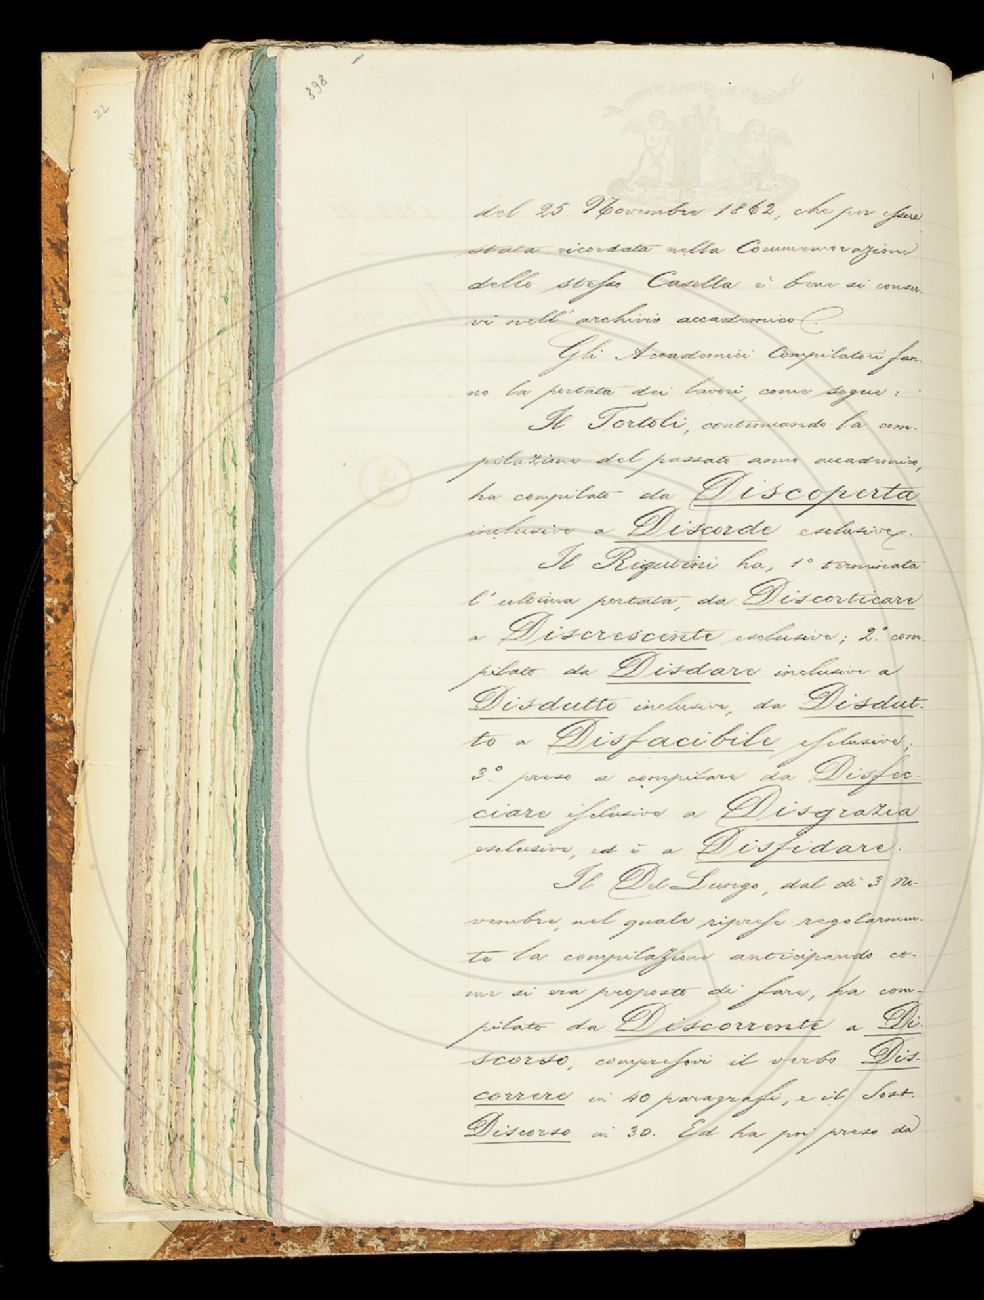 22
398
del 25 Novembre 1862, che per essere
stata ricordata nella Commemorazione
dello stesso Casella è bene si conser-
vi nell'archivio accademico.
Gli Accademici Compilatori fan-
no la portata dei lavori, come segue:
Il Tortoli, continuando la com-
pilazione del passato anno accademico,
ha compilato da Discoperta
inclusive a Discorde esclusive.
Il Rigutini ha, 1º terminata
l'ultima portata, da Discorticare
a Discrescente esclusive; 2.º com-
pilato da Disdare inclusive a
Disdutto inclusive, da Disdut-
to a Disfacibile esclusive;
3.º preso a compilare da Disfec-
ciare esclusive a Disgrazia
esclusive, ed è a Disfidare.
Il Del Lungo, dal dì 3 No-
vembre, nel quale riprese regolarmen-
te la compilazione anticipando co-
me si era proposto di fare, ha com-
pilato da Discorrente a Di-
scorso, compresovi il verbo Dis-
correre in 40 paragrafi, e il Sost.
Discorso in 30. Ed ha poi preso da